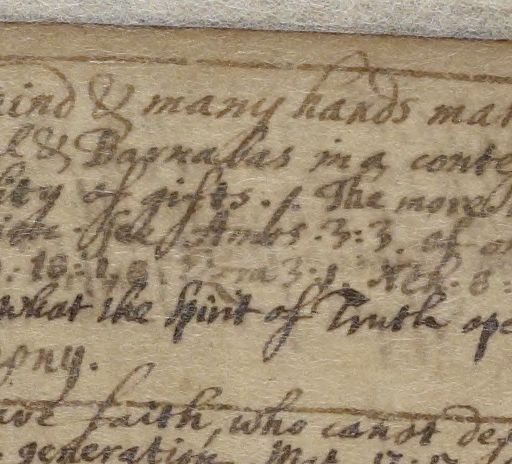 mind & many hands mak
l & Barnabas in a conte
lity of gifts. The more
see Amos. 3:3. of on
Ezra 3:1. Neh. 8:
what the Spirit of Truth ope
ony.
ave faith, who canot de
generation Mat. 17:17